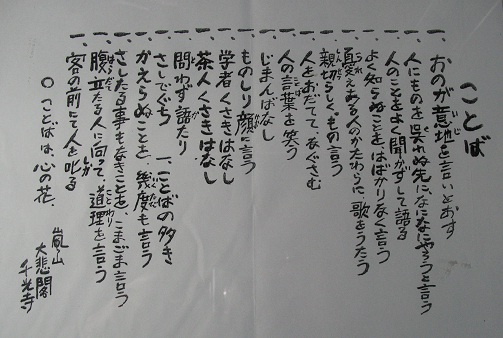 ことば
一、おのが意地を言いとおす
一、人にものを呉れぬ先に、なになにやろうと言う
一、人のことをよく聞かずして語る
一、よく知らぬことを、はばかりなく言う
一、憂えある人のかたわらに歌をうたう
一、親切らしく、もの言う
一、人をおだてて、なぐさむ
一、人の言葉を笑う
一、じまんばなし
一、ものしり顔に言う
一、学者くさきはなし
一、茶人くさきはなし
一、問わず語り
一、さしでぐち 一、ことばの多き
一、かえらぬことを、幾度も言う
一、さしたる事もなきことを、こまごま言う
一、腹立たる人に向って、道理を言う
一、客の前にて人を叱る
○ことばは、心の花、
嵐山
大悲閣
千光寺